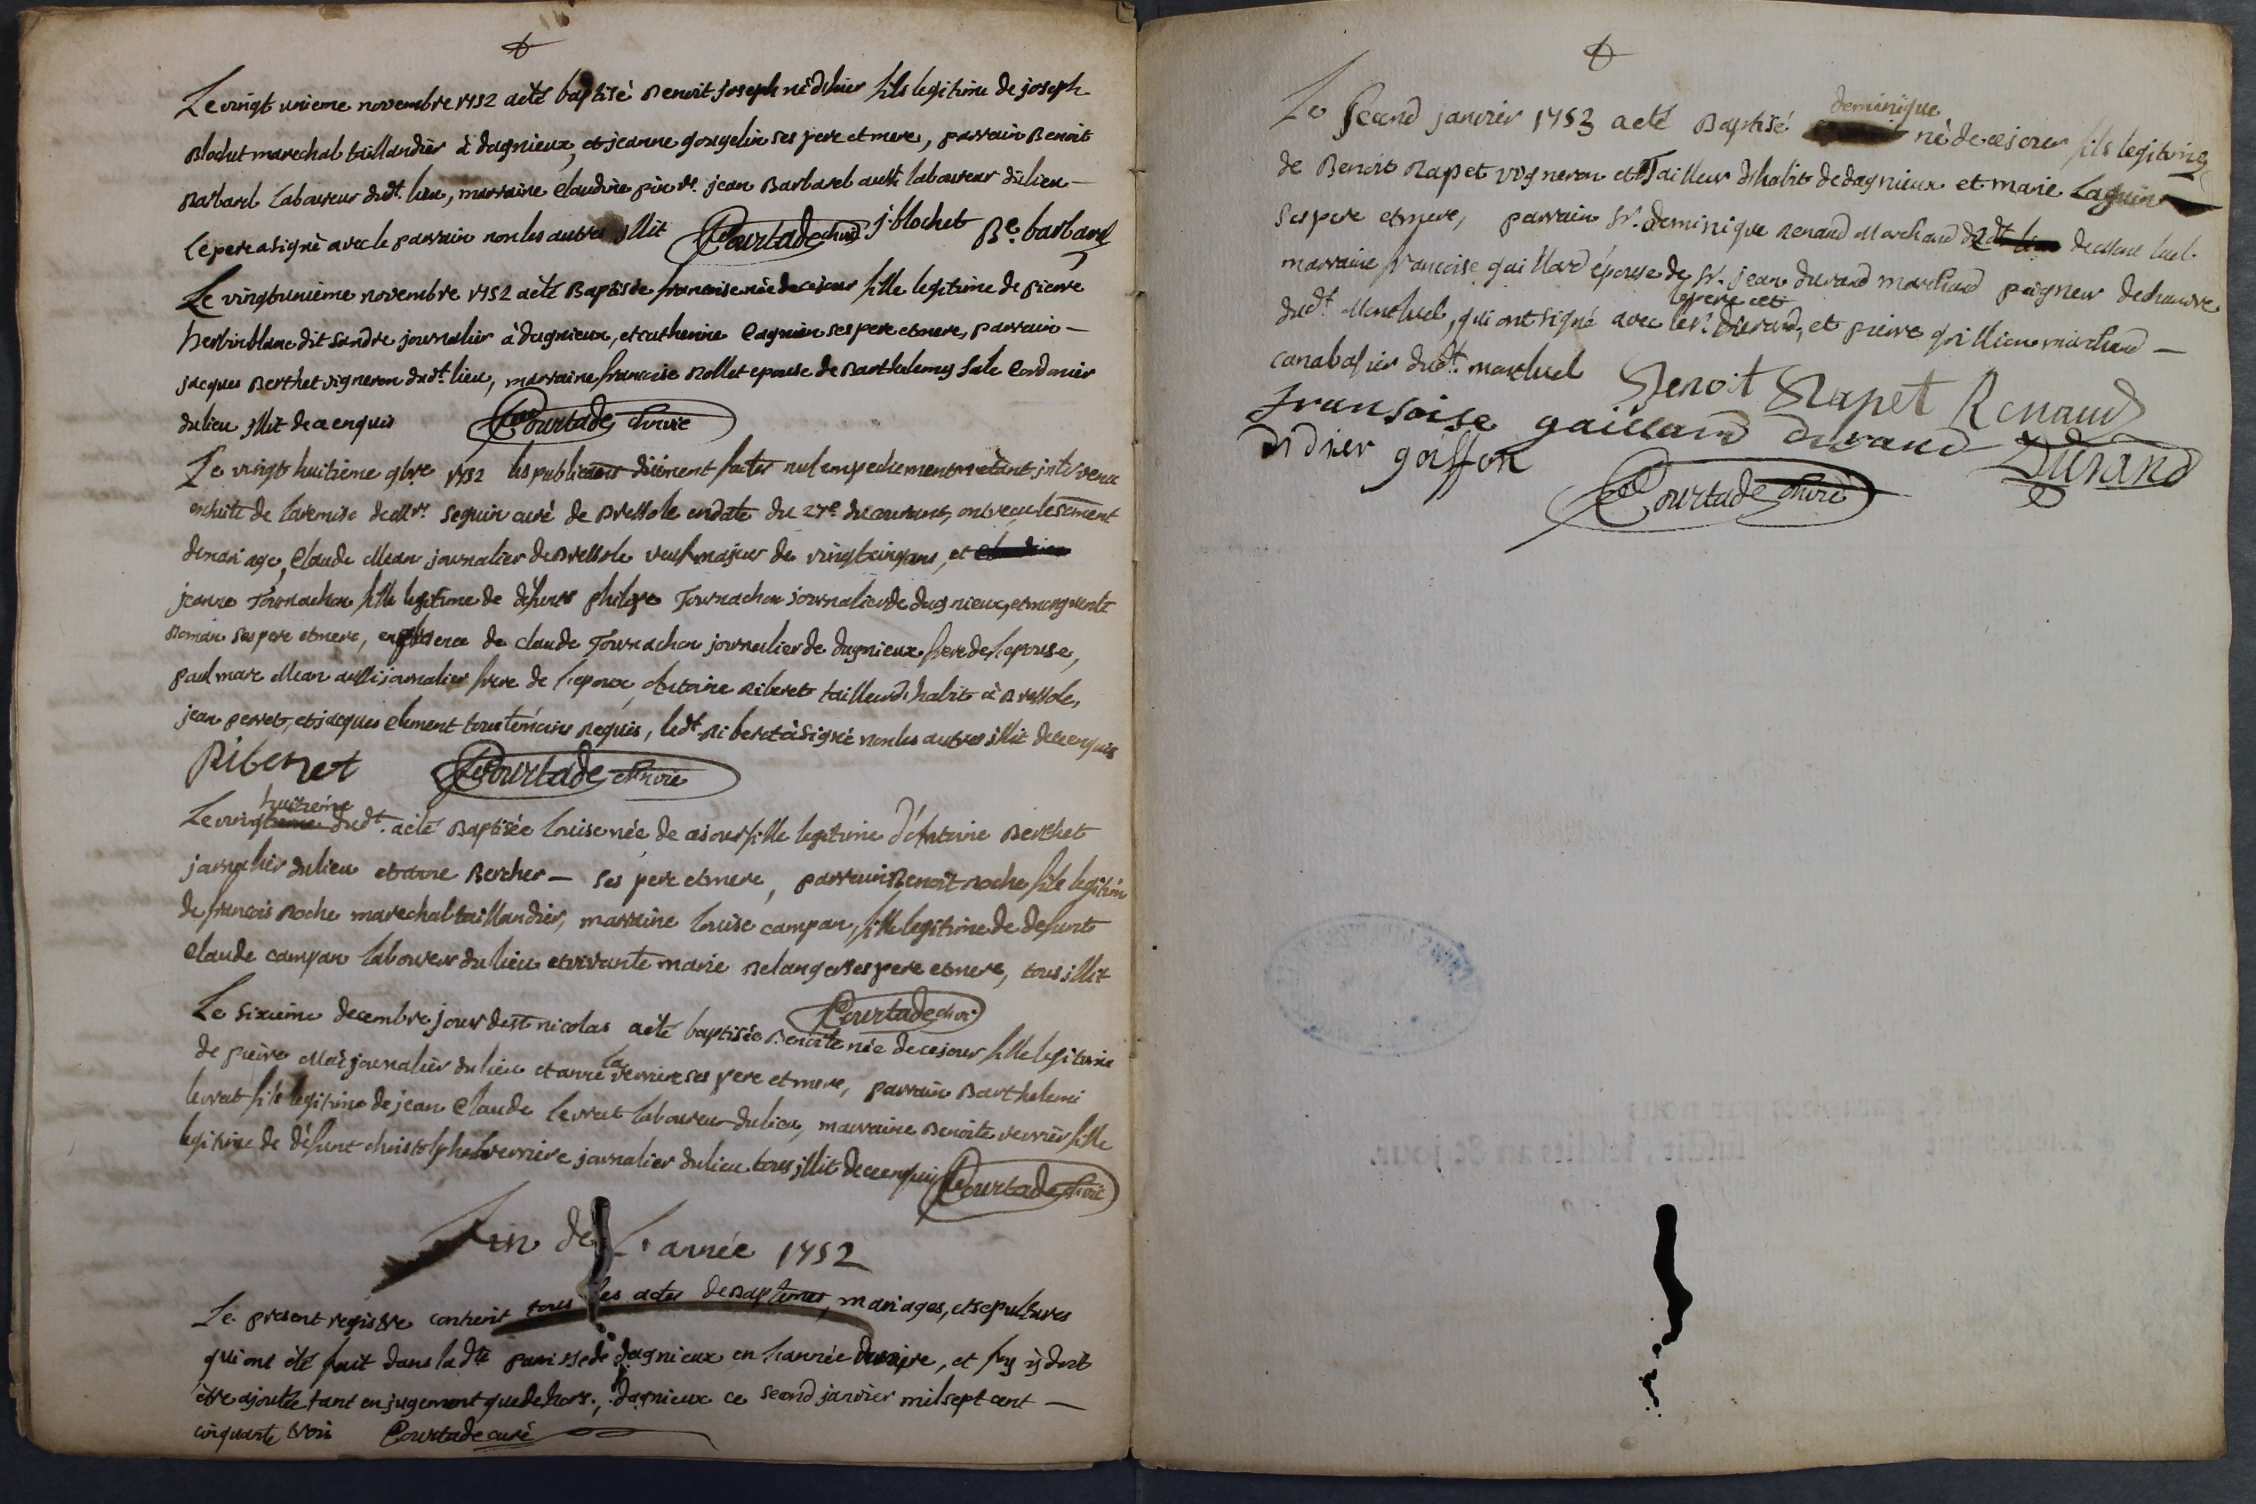 Le vingt unieme novembre 1752 a eté baptisé Benoit Joseph né d'hier fils legitime de joseph
Blochet marechal taillandier à dagnieux, et jeanne gougelin ses pere et mere, parrain Benoit
Barbarel Laboureur dudt. lieu, marraine Claudine jean Barbarel aussi laboureur du lieu —
le pere a signé avec le parrain non les autres illit Courtade curé j. blochet Be. barbarel
Le vingt unième novembre 1752 a eté Baptisée francoise née de ce jour fille legitime de pierre
herbinblanc dit Sandre journalier à dagnieux, et catherine Cagnin ses pere et mere, parrain —
jacques Berthet vigneron dudt. lieu, marraine francoise Rollet epouse de Barthelemy Sale Cordonier
du lieu illit de ce enquis Courtade curé
Le vingt huitième 9bre 1752 les publications düement faites nul empechement n'etant intervenu
ensuite de la remise de Mr. Seguin curé de Bressole en date du 27e du courant, ont recu le Sacrement
de mariage, Claude Mean journalier de Bressole veuf majeur de vingt cinq ans, et
jeanne Tournachon fille legitime de defunts philipe Tournachon journalier de dagnieux, et marguerite
Romain ses pere et mere, en presence de Claude Tournachon journalier de dagnieux frere de l'epouse,
paul marc Mean aussi journalier frere de l'epoux, Antoine Riberet tailleur d'habit à Bressole,
jean perret, et jacques Clement tous temoins Requis, ledt. Riberet a signé non les autres illit de ce enquis
Riberet Courtade curé
huitiéme
Le vingt dudt. a eté Baptisée Louise née de ce jour fille legitime d'Antoine Berthet
journalier du lieu et anne Bercher — ses pere et mere, parrain Benoit Roche fils legitim
de francois Roche marechal taillandier, marraine Louise campan, fille legitime de defunt
Claude campan laboureur du lieu et vivante marie Belanger ses pere et mere, tous illit
Courtade curé
Le sixieme decembre jour de St nicolas a eté baptisée Benoite née de ce jour fille legitime
de pierre Mas journalier du lieu et anne la verriere ses pere et mere, parrain Barthelemi
levrat fils legitime de jean Claude levrat laboureur du lieu, marraine Benoite verrier fille
legitime de defunt christophe verriere journalier du lieu tous illit de ce enquis Courtade curé
Fin de L'année 1752
Le present registre contient tous les actes de Baptêmes, mariages, et sepultures
qui ont été fait dans ladte paroisse de dagnieux en l'année derniere, et foy y doit
être ajoutée tant en jugement que dehors, Dagnieux ce second janvier mil sept cent —
cinquante trois Courtade curé
deminique
Le second janvier 1753 a eté Baptisé né de ce jour fils legitime
de Benoit Rapet vigneron et Tailleur d'habit de dagnieux et marie Cagnin
ses pere et mere, parrain Sr. deminique Renaud Marchand de Montluel
marraine francoise gaillard épouse de Sr. jean durand marchand peigneur de chanvre
le pere et
dudt. Montluel, qui ont signé avec le Sr. Durand, et pierre goiffon marchand —
canabasier dudt. montluel Benoit Rapet Renaud
fransoise gaillard durand Durand
didier goiffon
Courtade curé